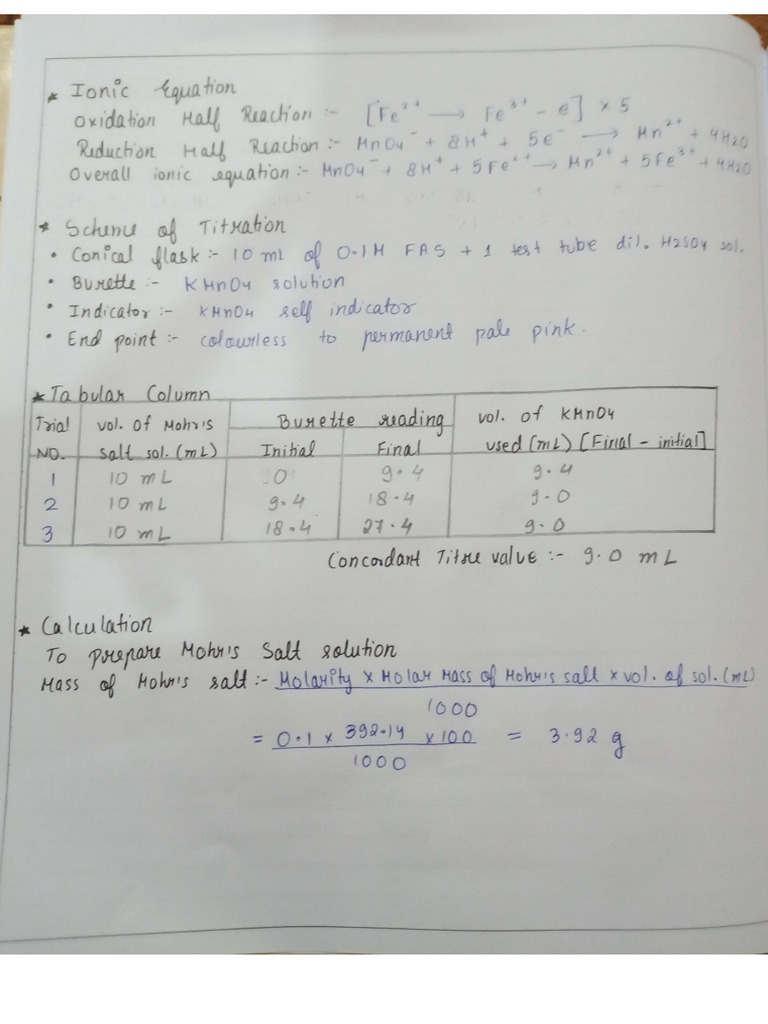 * Ionic Equation
Oxidation Half Reaction :- [Fe²⁺ ⟶ Fe³⁺ - e] × 5
Reduction Half Reaction :- MnO4⁻ + 8H⁺ + 5e⁻ ⟶ Mn²⁺ + 4H2O
Overall ionic equation :- MnO4⁻ + 8H⁺ + 5Fe²⁺ ⟶ Mn²⁺ + 5Fe³⁺ + 4H2O
* Scheme of Titration
• Conical flask :- 10 mL of 0.1M FAS + 1 test tube dil. H2SO4 sol.
• Burette :- KMnO4 solution
• Indicator :- KMnO4 self indicator
• End point :- colourless to permanent pale pink.
* Tabular Column
Trial vol. of Mohr's Burette reading vol. of KMnO4
NO. salt sol. (mL) Initial Final used (mL) [Final - initial]
1 10 mL 0 9.4 9.4
2 10 mL 9.4 18.4 9.0
3 10 mL 18.4 27.4 9.0
Concordant Titre value :- 9.0 mL
* Calculation
To prepare Mohr's Salt solution
Mass of Mohr's salt :- Molarity × Molar Mass of Mohr's salt × vol. of sol. (mL)
1000
= 0.1 × 392.14 × 100 = 3.92 g
1000